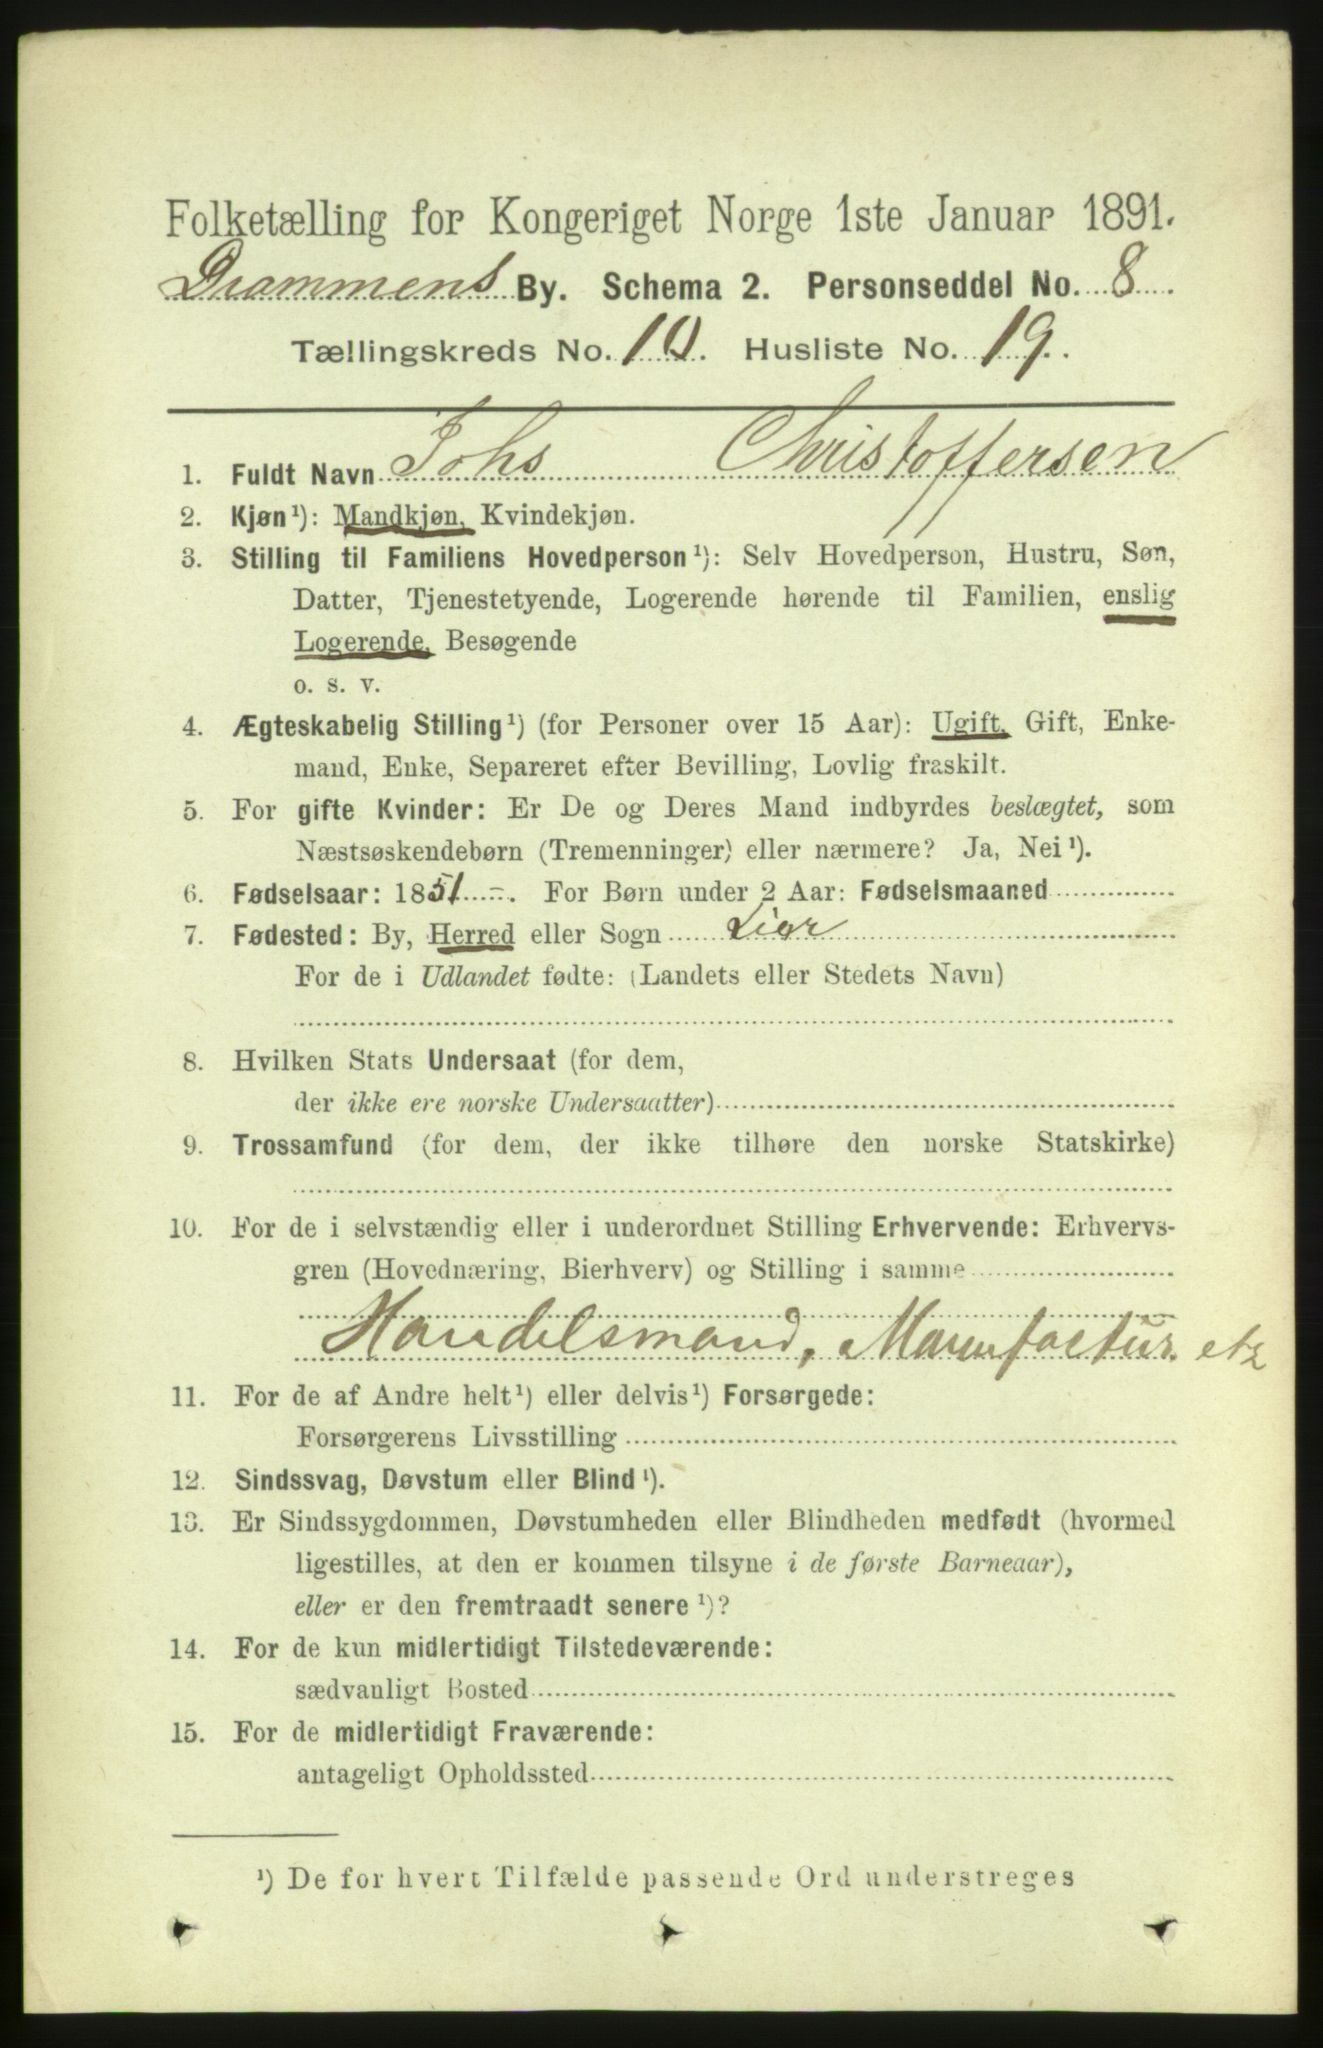 Folketælling for Kongeriget Norge 1ste Januar 1891.
Drammens By. Schema 2. Personseddel No. 8.
Tællingskreds No. 10. Husliste No. 19.
1. Fuldt Navn Johs Christoffersen
2. Kjøn¹): Mandkjøn, Kvindekjøn.
3. Stilling til Familiens Hovedperson¹): Selv Hovedperson, Hustru, Søn,
Datter, Tjenestetyende, Logerende hørende til Familien, enslig
Logerende, Besøgende
o. s. v.
4. Ægteskabelig Stilling¹) (for Personer over 15 Aar): Ugift, Gift, Enke-
mand, Enke, Separeret efter Bevilling, Lovlig fraskilt.
5. For gifte Kvinder: Er De og Deres Mand indbyrdes beslægtet, som
Næstsøskendebørn (Tremenninger) eller nærmere? Ja, Nei¹).
6. Fødselsaar: 1851. For Børn under 2 Aar: Fødselsmaaned
7. Fødested: By, Herred eller Sogn Lier
For de i Udlandet fødte: (Landets eller Stedets Navn)
8. Hvilken Stats Undersaat (for dem,
der ikke ere norske Undersaatter)
9. Trossamfund (for dem, der ikke tilhøre den norske Statskirke)
10. For de i selvstændig eller i underordnet Stilling Erhvervende: Erhvervs-
gren (Hovednæring, Bierhverv) og Stilling i samme
Handelsmand, Manufactur etz
11. For de af Andre helt¹) eller delvis¹) Forsørgede:
Forsørgerens Livsstilling
12. Sindssvag, Døvstum eller Blind¹).
13. Er Sindssygdommen, Døvstumheden eller Blindheden medfødt (hvormed
ligestilles, at den er kommen tilsyne i de første Barneaar),
eller er den fremtraadt senere¹)?
14. For de kun midlertidigt Tilstedeværende:
sædvanligt Bosted
15. For de midlertidigt Fraværende:
antageligt Opholdssted
¹) De for hvert Tilfælde passende Ord understreges